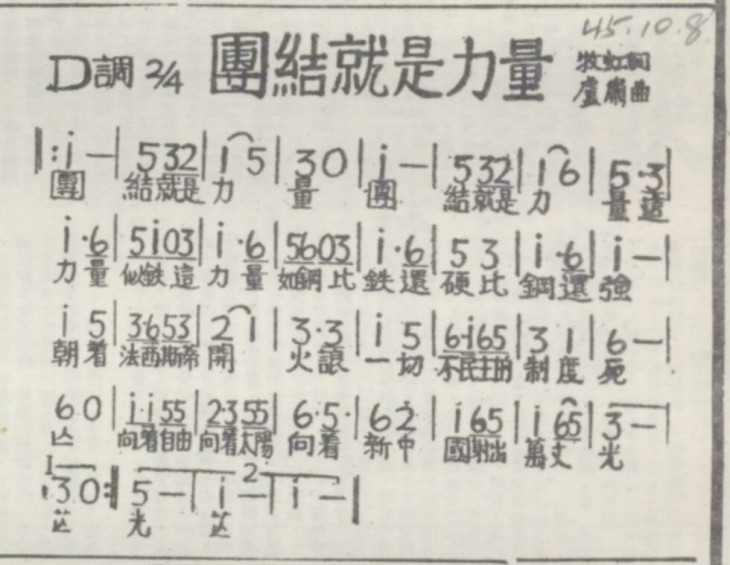 45.10.8
D調 2/4 團結就是力量 牧虹詞
盧肅曲
‖:i —|5 32|1 5|3 0|i —|5 32|1 6|5·3|
團 結就是 力 量 團 結就是 力 量這
i·6|5i03|i·6|5603|i·6|5 3|i·6|i —|
力量 似鉄這 力量 如鋼比 鉄還 硬比 鋼還 強
i 5|3653|2 1|3·3|i 5|6·i65|3 1|6 —|
朝着 法西斯蒂 開 火讓 一切 不民主的 制度 死
60|i·i55|2·355|6·5·|62|i65|i65|3—|
亾 向着自由 向着太陽 向着 新中 國射出 萬丈 光
1 2
30:‖5 —|i —|i —|
芒 光 芒